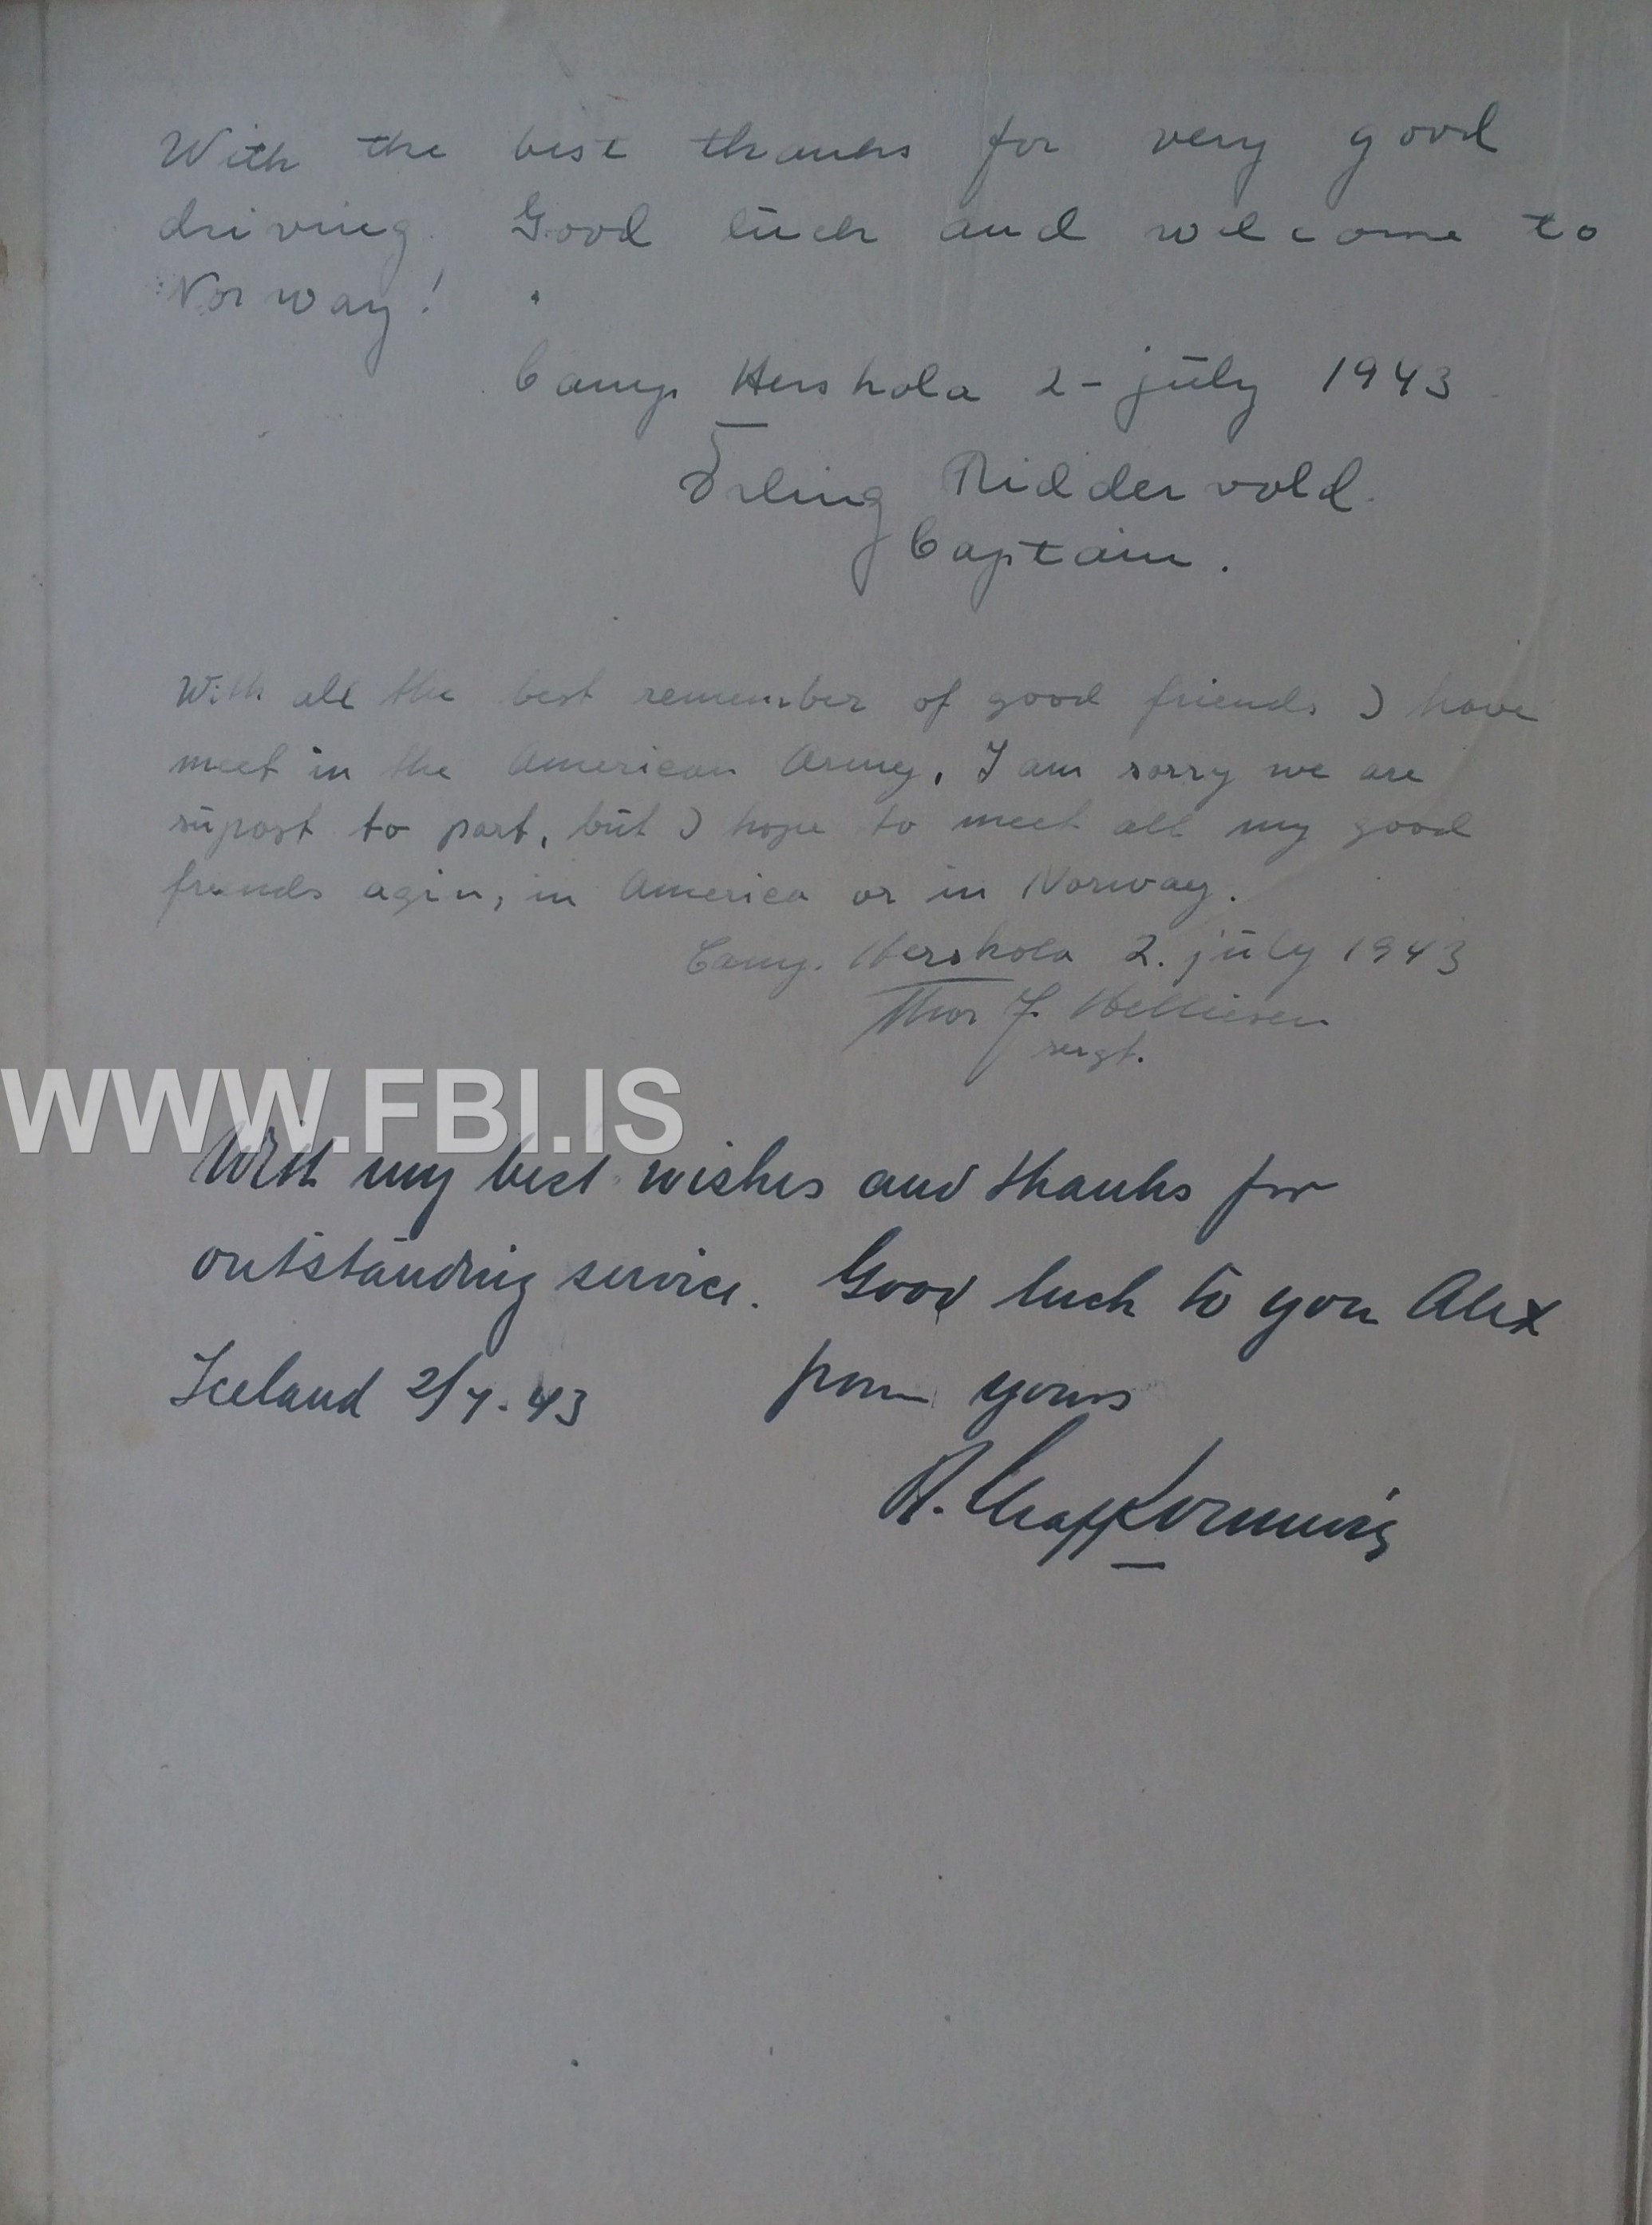 With the best thanks for very good
driving. Good luck and welcome to
Norway!
Camp Hershola 2 - july 1943
Erling Riddervold.
Captain.
With all the best remember of good friends I have
meet in the American Army, I am sorry we are
supost to part, but I hope to meet all my good
friends agin, in America or in Norway.
Camp. Hershola 2. july 1943
Thor J. Helliesen
sergt.
WWW.FBI.IS
With my best wishes and thanks for
outstanding service. Good luck to you Alex
Iceland 2/7. 43 from yours
A.